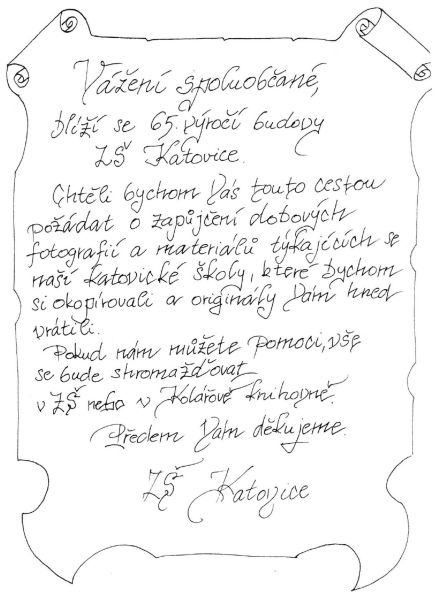 Vážení spoluobčané,
blíží se 65. výročí budovy
ZŠ Katovice.
Chtěli bychom Vás touto cestou
požádat o zapůjčení dobových
fotografií a materiálů týkajících se
naší katovické školy, které bychom
si okopírovali a originály Vám hned
vrátili.
Pokud nám můžete pomoci, vše
se bude shromažďovat
v ZŠ nebo v Kolářově knihovně.
Předem Vám děkujeme.
ZŠ Katovice